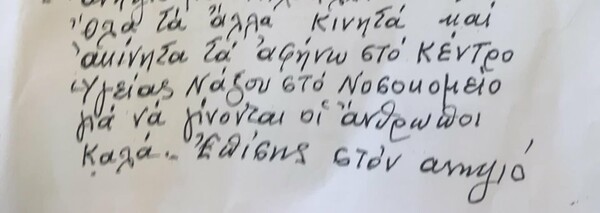 Ὅλα τά ἄλλα κινητά καί
ἀκίνητα τά ἀφήνω στό κέντρο
Ὑγείας Νάξου στό Νοσοκομεῖο
γιά νά γίνονται οἱ ἄνθρωποι
καλά.. Ἐπίσης στόν ανηψιό